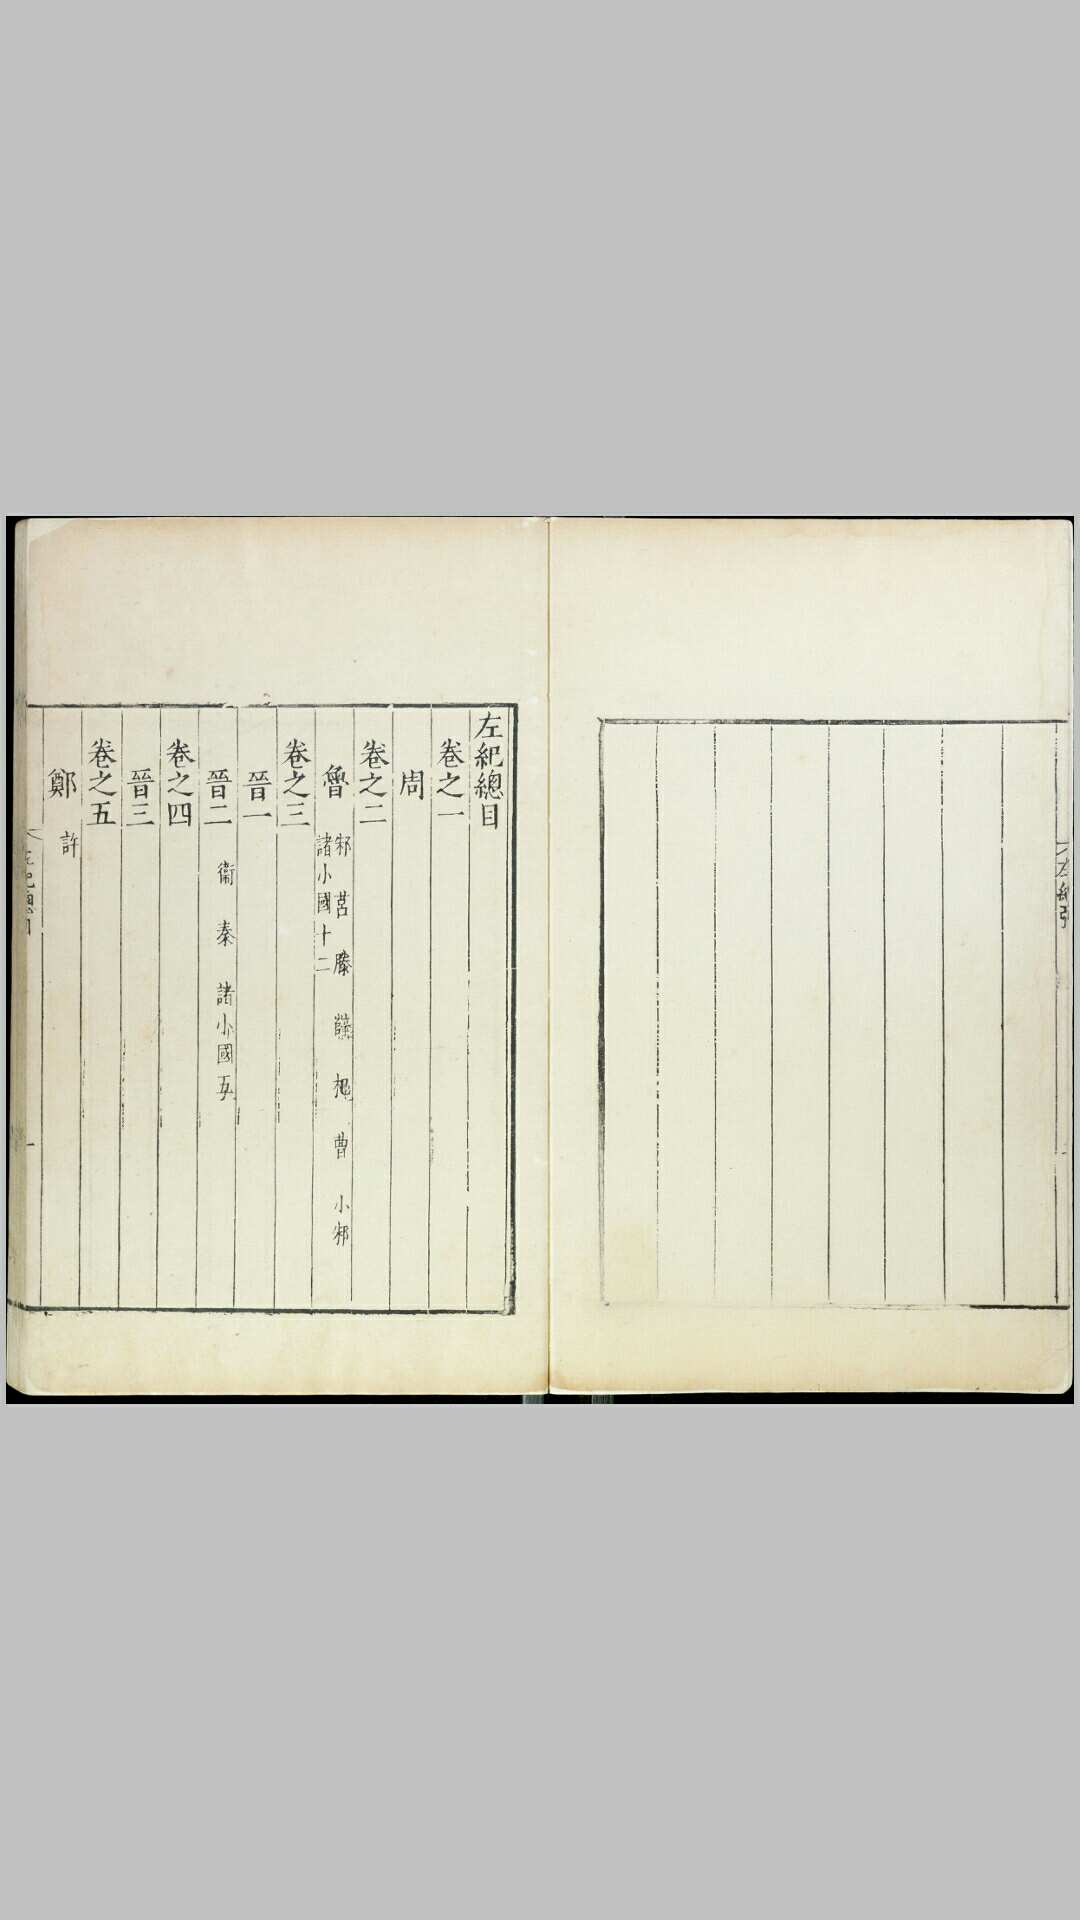 左紀引
左紀總目
卷之一
周
卷之二
魯 邾 莒 滕 薛 杞 曹 小邾
諸小國十二
卷之三
晉一
晉二 衛 秦 諸小國五
卷之四
晉三
卷之五
鄭 許
左紀總目
一